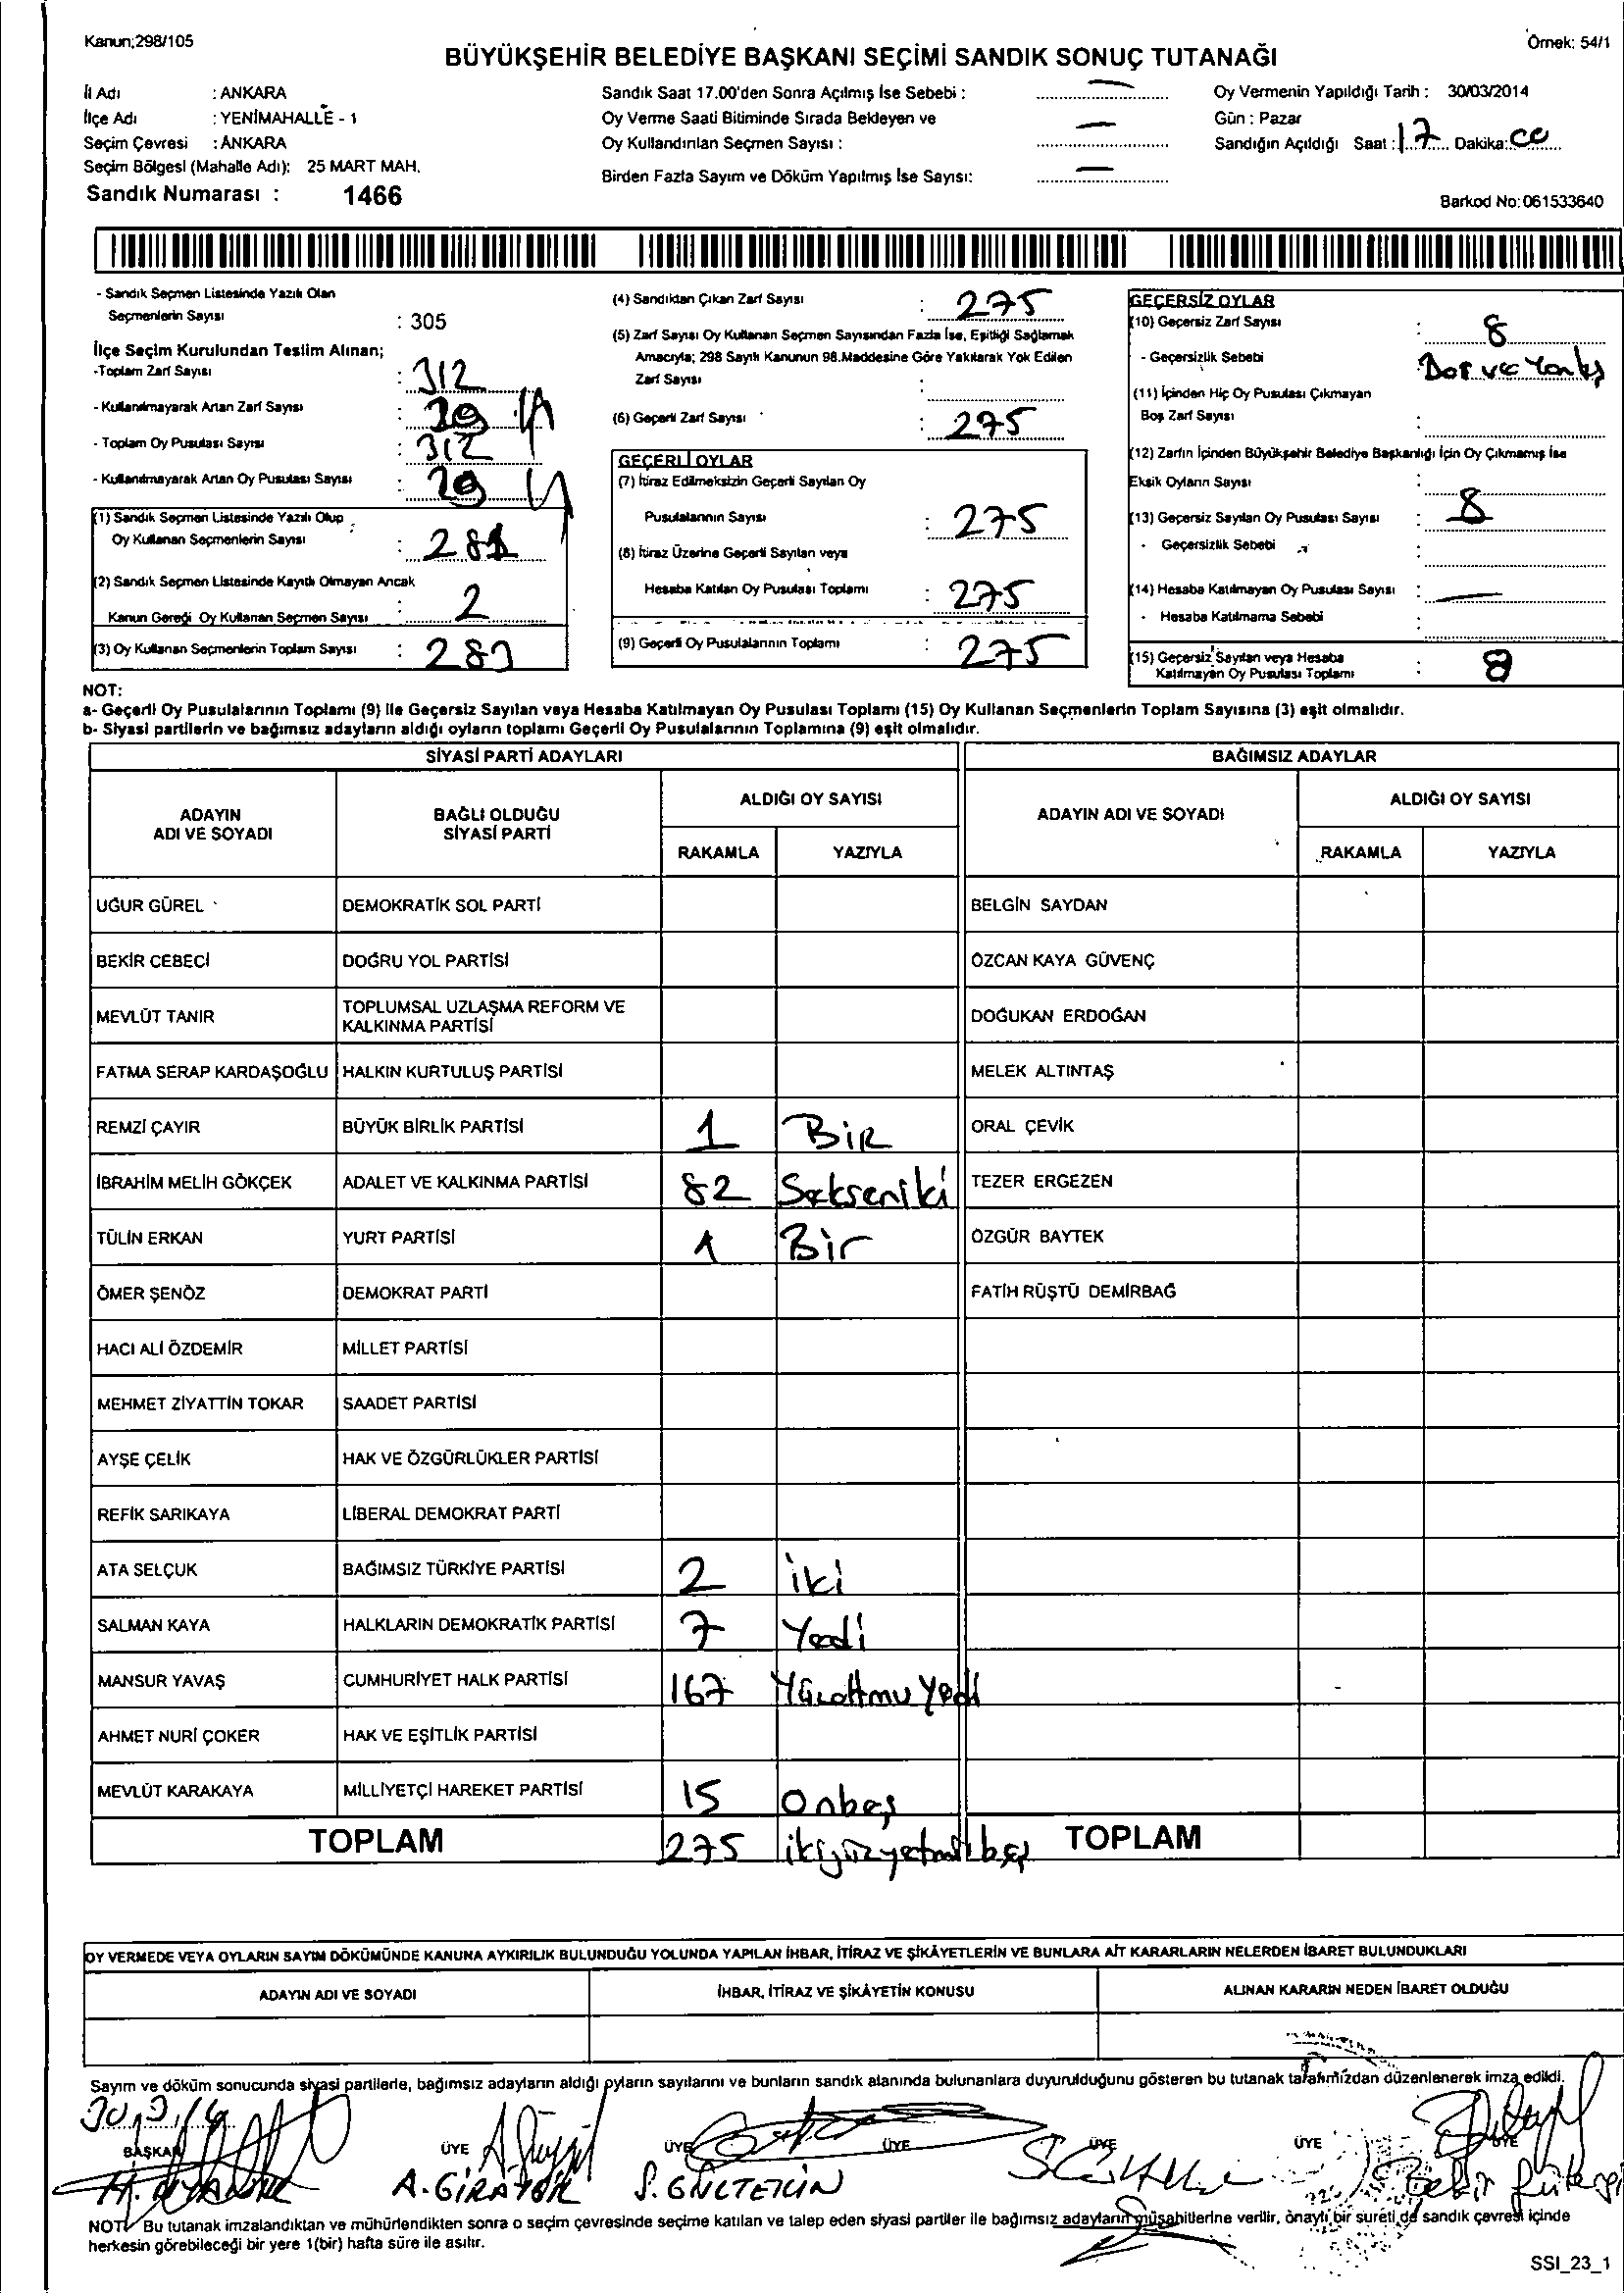 Kanun;298/105
Örnek: 54/1
BÜYÜKŞEHİR BELEDİYE BAŞKANI SEÇİMİ SANDIK SONUÇ TUTANAĞI
İl Adı : ANKARA
İlçe Adı : YENİMAHALLE - 1
Seçim Çevresi : ANKARA
Seçim Bölgesi (Mahalle Adı): 25 MART MAH.
Sandık Numarası : 1466
Sandık Saat 17.00'den Sonra Açılmış İse Sebebi : —
Oy Verme Saati Bitiminde Sırada Bekleyen ve
Oy Kullandırılan Seçmen Sayısı : —
Birden Fazla Sayım ve Döküm Yapılmış İse Sayısı: —
Oy Vermenin Yapıldığı Tarih : 30/03/2014
Gün : Pazar
Sandığın Açıldığı Saat : 17 Dakika: 00
Barkod No: 061533640
- Sandık Seçmen Listesinde Yazılı Olan
Seçmenlerin Sayısı : 305
İlçe Seçim Kurulundan Teslim Alınan;
-Toplam Zarf Sayısı : 312
- Kullanılmayarak Artan Zarf Sayısı : 29
- Toplam Oy Pusulası Sayısı : 312
- Kullanılmayarak Artan Oy Pusulası Sayısı : 29
(1) Sandık Seçmen Listesinde Yazılı Olup
Oy Kullanan Seçmenlerin Sayısı : 281
(2) Sandık Seçmen Listesinde Kayıtlı Olmayan Ancak
Kanun Gereği Oy Kullanan Seçmen Sayısı : 2
(3) Oy Kullanan Seçmenlerin Toplam Sayısı : 283
(4) Sandıktan Çıkan Zarf Sayısı : 275
(5) Zarf Sayısı Oy Kullanan Seçmen Sayısından Fazla İse, Eşitliği Sağlamak
Amacıyla; 298 Sayılı Kanunun 98.Maddesine Göre Yakılarak Yok Edilen
Zarf Sayısı :
(6) Geçerli Zarf Sayısı : 275
GEÇERLİ OYLAR
(7) İtiraz Edilmeksizin Geçerli Sayılan Oy
Pusulalarının Sayısı : 275
(8) İtiraz Üzerine Geçerli Sayılan veya
Hesaba Katılan Oy Pusulası Toplamı : 275
(9) Geçerli Oy Pusulalarının Toplamı : 275
GEÇERSİZ OYLAR
(10) Geçersiz Zarf Sayısı : 8
- Geçersizlik Sebebi : ve
(11) İçinden Hiç Oy Pusulası Çıkmayan
Boş Zarf Sayısı :
(12) Zarfın İçinden Büyükşehir Belediye Başkanlığı İçin Oy Çıkmamış İse
Eksik Oyların Sayısı :
(13) Geçersiz Sayılan Oy Pusulası Sayısı : 8
- Geçersizlik Sebebi :
(14) Hesaba Katılmayan Oy Pusulası Sayısı : —
- Hesaba Katılmama Sebebi :
(15) Geçersiz Sayılan veya Hesaba
Katılmayan Oy Pusulası Toplamı : 8
NOT:
a- Geçerli Oy Pusulalarının Toplamı (9) ile Geçersiz Sayılan veya Hesaba Katılmayan Oy Pusulası Toplamı (15) Oy Kullanan Seçmenlerin Toplam Sayısına (3) eşit olmalıdır.
b- Siyasi partilerin ve bağımsız adayların aldığı oyların toplamı Geçerli Oy Pusulalarının Toplamına (9) eşit olmalıdır.
SİYASİ PARTİ ADAYLARI BAĞIMSIZ ADAYLAR
ADAYIN ADI VE SOYADI BAĞLI OLDUĞU SİYASİ PARTİ ALDIĞI OY SAYISI ADAYIN ADI VE SOYADI ALDIĞI OY SAYISI
RAKAMLA YAZIYLA RAKAMLA YAZIYLA
UĞUR GÜREL DEMOKRATİK SOL PARTİ BELGİN SAYDAN
BEKİR CEBECİ DOĞRU YOL PARTİSİ ÖZCAN KAYA GÜVENÇ
MEVLÜT TANIR TOPLUMSAL UZLAŞMA REFORM VE KALKINMA PARTİSİ DOĞUKAN ERDOĞAN
FATMA SERAP KARDAŞOĞLU HALKIN KURTULUŞ PARTİSİ MELEK ALTINTAŞ
REMZİ ÇAYIR BÜYÜK BİRLİK PARTİSİ 1 BİR ORAL ÇEVİK
İBRAHİM MELİH GÖKÇEK ADALET VE KALKINMA PARTİSİ 82 Sekseniki TEZER ERGEZEN
TÜLİN ERKAN YURT PARTİSİ 1 Bir ÖZGÜR BAYTEK
ÖMER ŞENÖZ DEMOKRAT PARTİ FATİH RÜŞTÜ DEMİRBAĞ
HACI ALİ ÖZDEMİR MİLLET PARTİSİ
MEHMET ZİYATTİN TOKAR SAADET PARTİSİ
AYŞE ÇELİK HAK VE ÖZGÜRLÜKLER PARTİSİ
REFİK SARIKAYA LİBERAL DEMOKRAT PARTİ
ATA SELÇUK BAĞIMSIZ TÜRKİYE PARTİSİ 2 iki
SALMAN KAYA HALKLARIN DEMOKRATİK PARTİSİ 7 Yedi
MANSUR YAVAŞ CUMHURİYET HALK PARTİSİ 167
AHMET NURİ ÇOKER HAK VE EŞİTLİK PARTİSİ
MEVLÜT KARAKAYA MİLLİYETÇİ HAREKET PARTİSİ 15 Onbeş
TOPLAM 275 ikiyüzyetmişbeş TOPLAM
OY VERMEDE VEYA OYLARIN SAYIM DÖKÜMÜNDE KANUNA AYKIRILIK BULUNDUĞU YOLUNDA YAPILAN İHBAR, İTİRAZ VE ŞİKÂYETLERİN VE BUNLARA AİT KARARLARIN NELERDEN İBARET BULUNDUKLARI
ADAYIN ADI VE SOYADI İHBAR, İTİRAZ VE ŞİKÂYETİN KONUSU ALINAN KARARIN NEDEN İBARET OLDUĞU
Sayım ve döküm sonucunda siyasi partilerle, bağımsız adayların aldığı oyların sayılarını ve bunların sandık alanında bulunanlara duyurulduğunu gösteren bu tutanak tarafımızdan düzenlenerek imza edildi.
30.3.14
BAŞKAN ÜYE ÜYE ÜYE ÜYE ÜYE ÜYE
S. GÜLTEKİN Bekir
NOT: Bu tutanak imzalandıktan ve mühürlendikten sonra o seçim çevresinde seçime katılan ve talep eden siyasi partiler ile bağımsız adayların müşahitlerine verilir, onaylı bir sureti de sandık çevresi içinde
herkesin görebileceği bir yere 1(bir) hafta süre ile asılır.
SSI_23_1